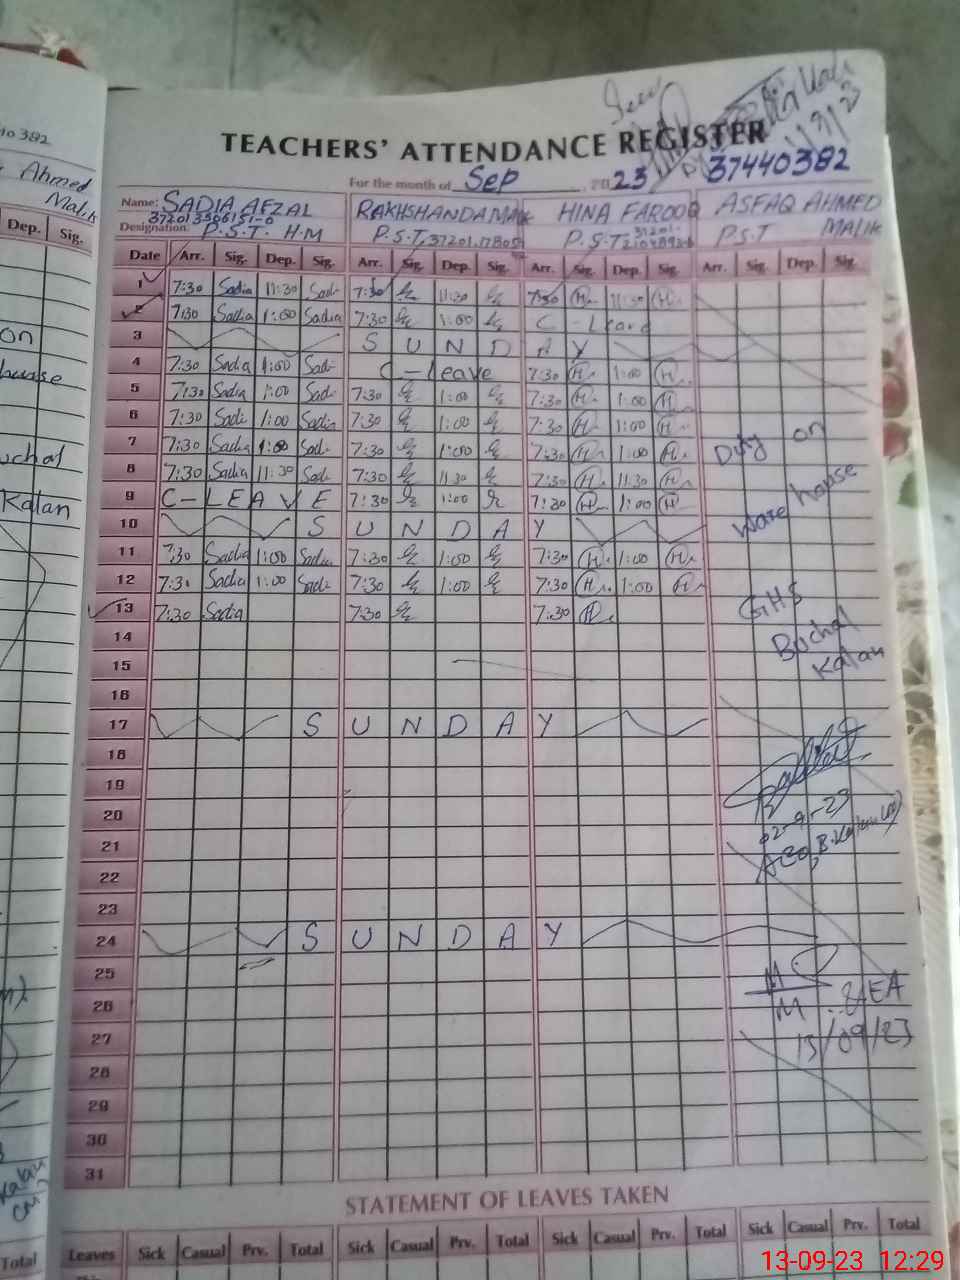 10 382
Ahmed
Malik
Dep. Sig.
on
Kalan
Total
Seen
TEACHERS' ATTENDANCE REGISTER
For the month of Sep, 2023
37440382
Name: SADIA AFZAL RAKHSHANDA MALIK HINA FAROOQ ASFAQ AHMED
Designation: P.S.T. H.M P.S.T, P.S.T P.S.T MALIK
Date Arr. Sig. Dep. Sig. Arr. Sig. Dep. Sig. Arr. Sig. Dep. Sig. Arr. Sig. Dep. Sig.
1 7:30 Sadia 11:30 Sadi 7:30 11:30 7:30 H 11:30 H
2 7:30 Sadia 1:00 Sadia 7:30 1:00 C - Leave
3 S U N D A Y
4 7:30 Sadia 1:00 Sadi C - leave 7:30 H 1:00 H
5 7:30 Sadia 1:00 Sadi 7:30 1:00 7:30 H 1:00 H
6 7:30 Sadi 1:00 Sadia 7:30 1:00 7:30 H 1:00 H
7 7:30 Sadia 1:00 Sadi 7:30 1:00 7:30 H 1:00 H
Duty on
8 7:30 Sadia 11:30 Sadi 7:30 11:30 7:30 H 11:30 H
9 C - L E A V E 7:30 1:00 7:30 H 1:00 H
Ware house
10 S U N D A Y
11 7:30 Sadia 1:00 Sadia 7:30 1:00 7:30 H 1:00 H
12 7:30 Sadia 1:00 Sadi 7:30 1:00 7:30 H 1:00 H
13 7:30 Sadia 7:30 7:30 H
GHS
14
Buchal
15
Kalan
16
17 S U N D A Y
18
19
20
02-9-23
21
22
23
24 S U N D A Y
25
26
M &EA
27
13/09/23
28
29
30
31
STATEMENT OF LEAVES TAKEN
Leaves Sick Casual Prv. Total Sick Casual Prv. Total Sick Casual Prv. Total Sick Casual Prv. Total
13-09-23 12:29